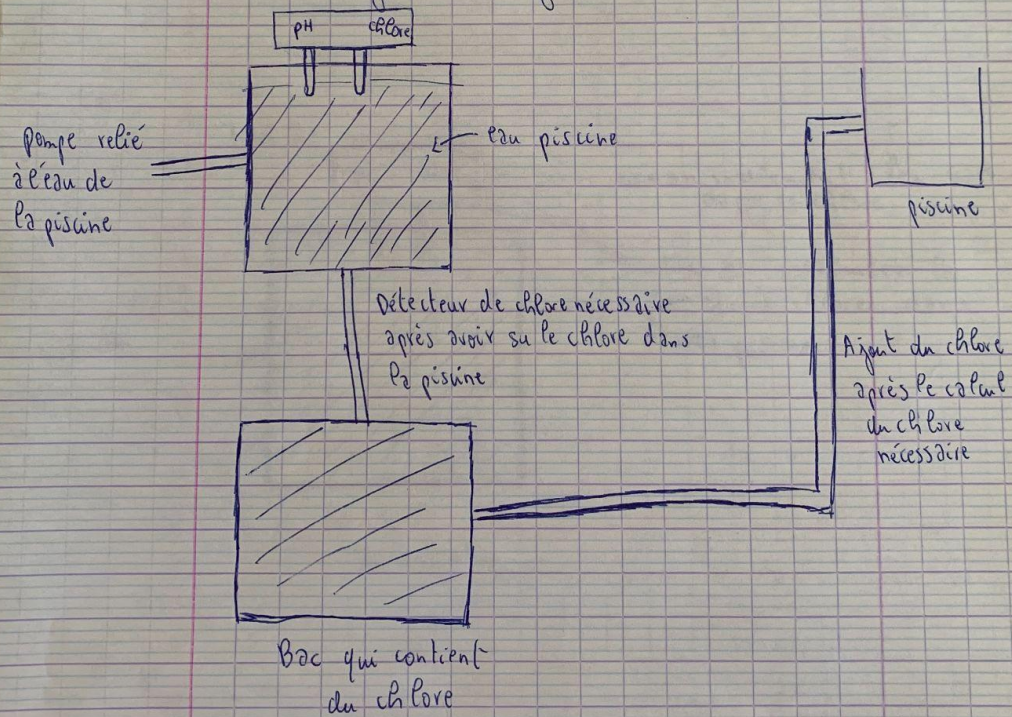 pH chlore
Pompe relié
à l'éau de
la piscine
eau piscine
piscine
Détecteur de chlore nécessaire
après avoir su le chlore dans
la piscine
Ajout du chlore
après le calcul
du chlore
nécessaire
Bac qui contient
du chlore